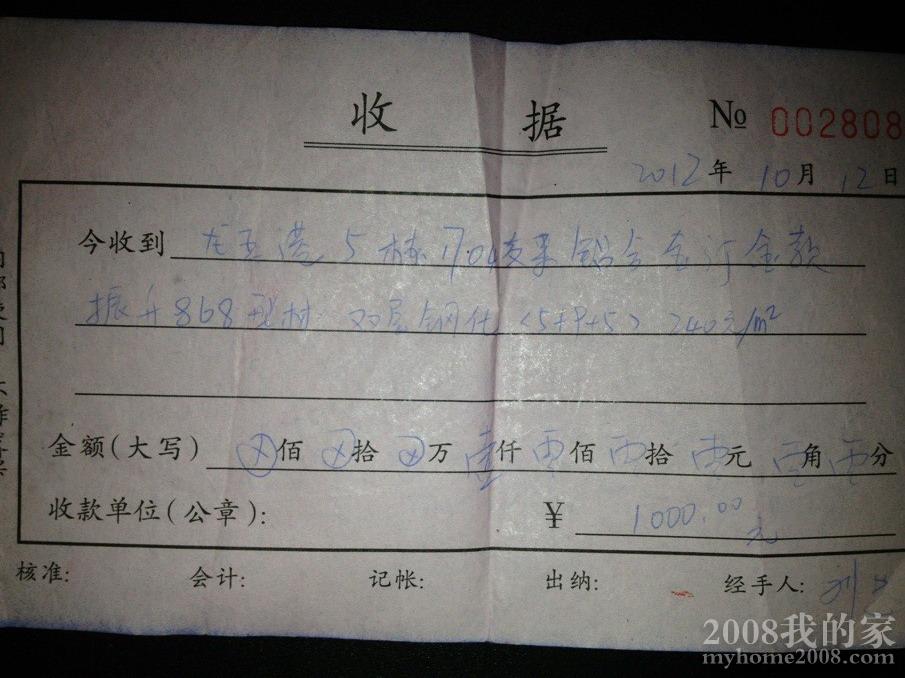 收 据
№ 002808
2012 年 10 月 12 日
今收到 龙玉港 5 栋 1704 铝合金订金款
振升868型材 双层钢化 <5+9+5> 240元/m²
金额(大写) ⊗佰 ⊗拾 ⊗万 壹仟 零佰 零拾 零元 零角 零分
收款单位(公章): ¥ 1000.00元
核准: 会计: 记帐: 出纳: 经手人: 刘
2008我的家
myhome2008.com